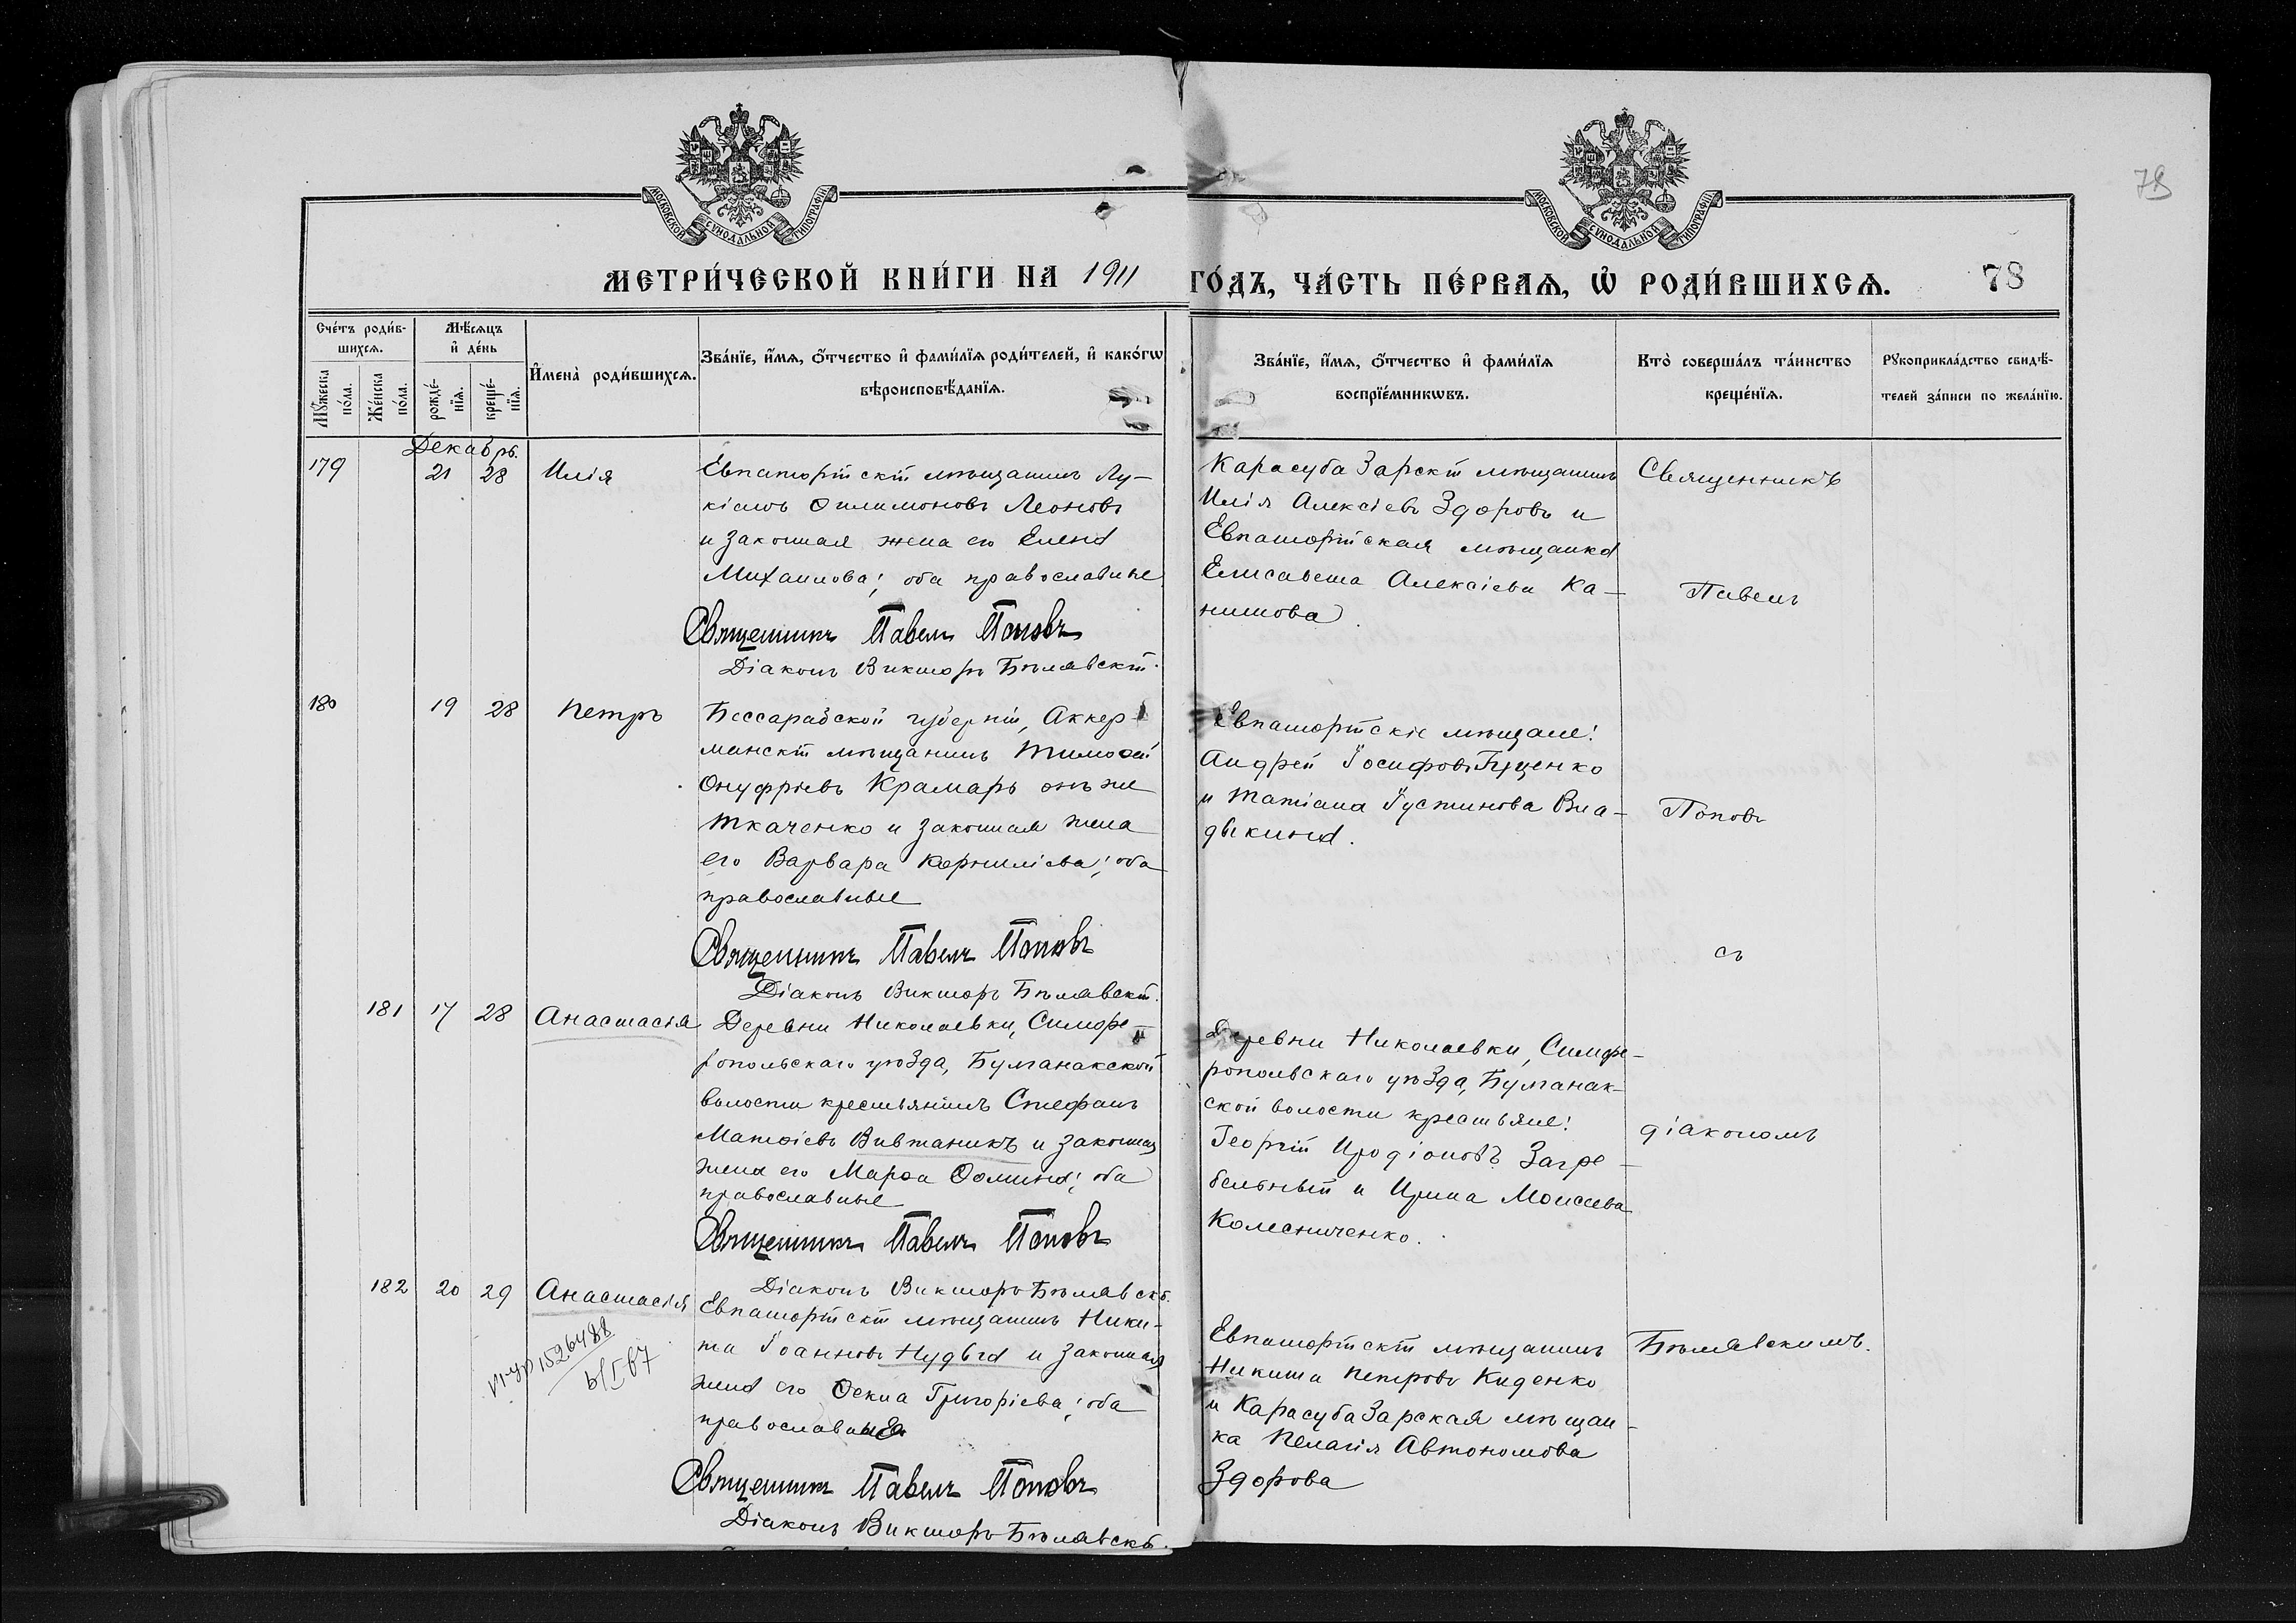 МОСКОВСКОЙ СѴНОДАЛЬНОЙ ТИПОГРАФІИ
МОСКОВСКОЙ СѴНОДАЛЬНОЙ ТИПОГРАФІИ
78
МЕТРИ́ЧЕСКОЙ КНИ́ГИ НА 1911 ГО́ДЪ, ЧА́СТЬ ПЕ́РВАѦ, Ѡ҆ РОДИ́ВШИХСѦ. 78
Сче́тъ роди́в-
шихсѧ.
Мꙋ́жеска по́ла.
Же́нска по́ла.
Мѣ́сѧцъ
и҆ де́нь
рожде́-
нїѧ.
креще́-
нїѧ.
И҆мена̀ роди́вшихсѧ.
Зва́нїе, и҆́мѧ, ѻ҆́тчество и҆ фами́лїѧ роди́телей, и҆ како́гѡ
вѣроисповѣ́данїѧ.
Зва́нїе, и҆́мѧ, ѻ҆́тчество и҆ фами́лїѧ
воспрїе́мникѡвъ.
Кто̀ соверша́лъ та́инство
креще́нїѧ.
Рꙋкоприкла́дство свидѣ́-
телей за́писи по жела́нїю.
Декабрь.
179 21 28 Илія
Евпаторійскій мѣщанинъ Лу-
кіанъ Филимоновъ Леоновъ
и законная жена его Елена
Михаилова; оба православные
Священникъ Павелъ Поповъ
Діаконъ Викторъ Бѣлявскій.
Карасубазарскій мѣщанинъ
Илія Алексіевъ Здоровъ и
Евпаторійская мѣщанка
Елисавета Алексіева Ка-
нинова.
Священникъ
Павелъ
180 19 28 Петръ
Бессарабской губерніи, Аккер-
манскій мѣщанинъ Тимоѳей
Онуфріевъ Крамарь онъ же
Ткаченко и законная жена
его Варвара Корниліева; оба
православные
Священникъ Павелъ Поповъ
Діаконъ Викторъ Бѣлявскій.
Евпаторійскіе мѣщане:
Андрей Іосифовъ Гуценко
и Татіана Іустинова Вла-
дыкина.
Поповъ
съ
181 17 28 Анастасія
Деревни Николаевки, Симфе-
ропольскаго уѣзда, Булганакской
волости крестьянинъ Стефанъ
Матѳіевъ Вивтаникъ и законная
жена его Марѳа Ѳомина; оба
православные
Священникъ Павелъ Поповъ
Діаконъ Викторъ Бѣлявскій.
Деревни Николаевки, Симфе-
ропольскаго уѣзда, Булганак-
ской волости крестьяне:
Георгій Иродіоновъ Загре-
бельный и Ирина Моисеева
Колесниченко.
діакономъ
182 20 29 Анастасія
Евпаторійскій мѣщанинъ Ники-
та Іоанновъ Нудьга и законная
жена его Ѳекла Григоріева; оба
православные
Священникъ Павелъ Поповъ
Діаконъ Викторъ Бѣлявскій.
Евпаторійскій мѣщанинъ
Никита Петровъ Киденко
и Карасубазарская мѣщан-
ка Пелагія Автономова
Здорова
Бѣлявскимъ.